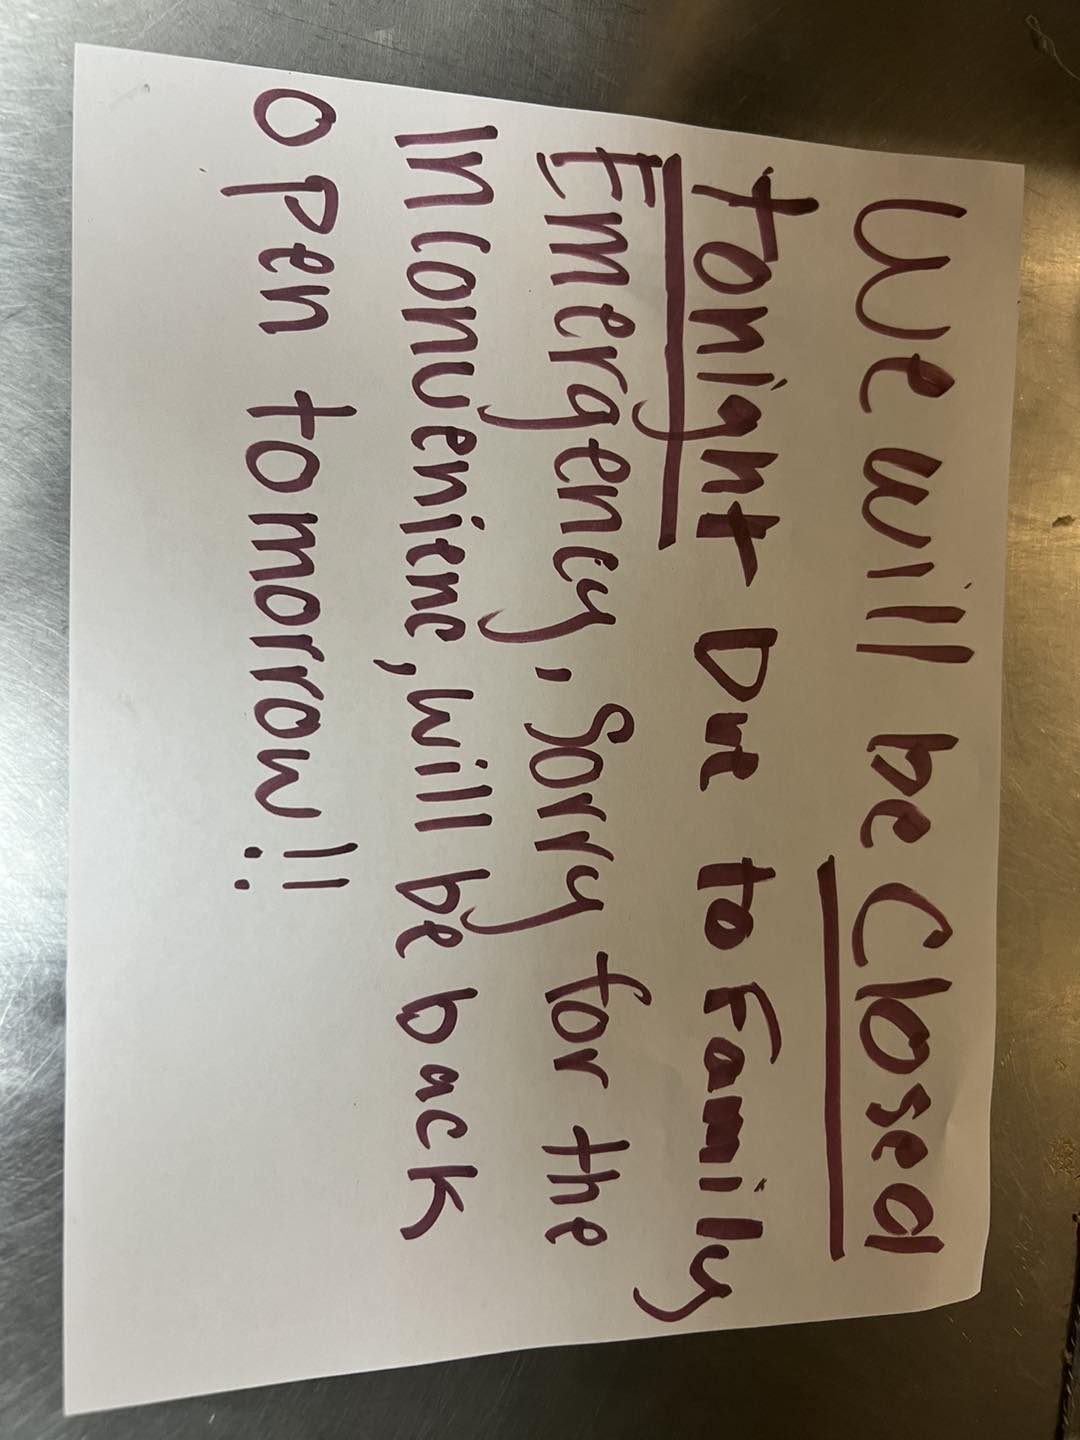 We will be Closed
tonight Due to Family
Emergency. Sorry for the
Inconveniene, will be back
open tomorrow!!